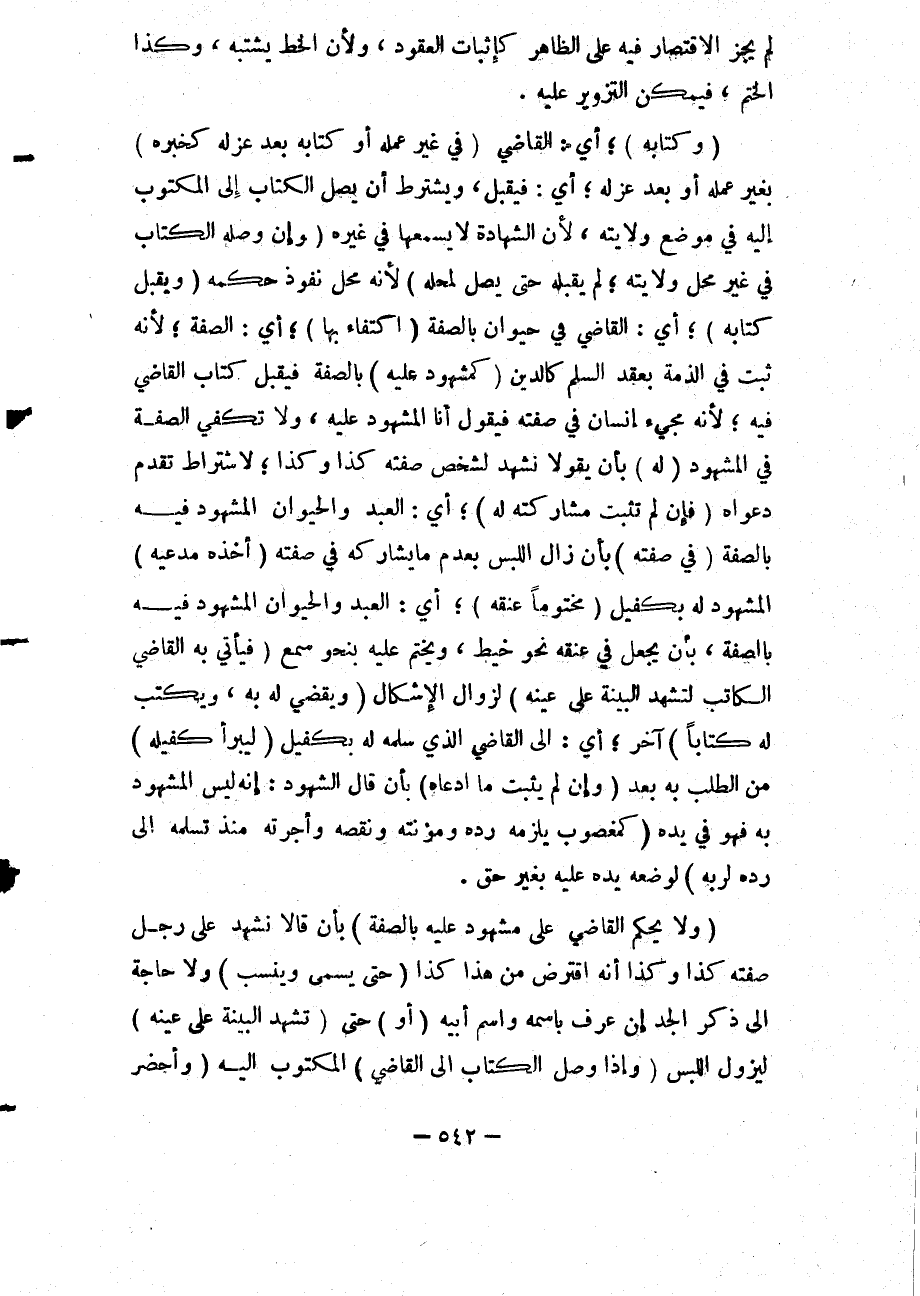 لم يجز الاقتصار فيه على الظاهر كإثبات العقود ، ولأن الخط يشتبه ، وكذا
الختم ، فيمكن التزوير عليه .
( وكتابه ) ؛ أي : القاضي ( في غير عمله أو كتابه بعد عزله كخبره )
بغير عمله أو بعد عزله ؛ أي : فيقبل ، ويشترط أن يصل الكتاب إلى المكتوب
إليه في موضع ولايته ، لأن الشهادة لايسمعها في غيره ( وإن وصله الكتاب
في غير محل ولايته ؛ لم يقبله حتى يصل لمحله ) لأنه محل نفوذ حكمه ( ويقبل
كتابه ) ؛ أي : القاضي في حيوان بالصفة ( اكتفاء بها ) ؛ أي : الصفة ؛ لأنه
ثبت في الذمة بعقد السلم كالدين ( كمشهود عليه ) بالصفة فيقبل كتاب القاضي
فيه ؛ لأنه مجيء انسان في صفته فيقول أنا المشهود عليه ، ولا تكفي الصفة
في المشهود ( له ) بأن يقولا نشهد لشخص صفته كذا وكذا ؛ لاشتراط تقدم
دعواه ( فإن لم تثبت مشاركته له ) ؛ أي : العبد والحيوان المشهود فيه
بالصفة ( في صفته ) بأن زال اللبس بعدم مايشاركه في صفته ( أخذه مدعيه )
المشهود له بكفيل ( مختوماً عنقه ) ؛ أي : العبد والحيوان المشهود فيه
بالصفة ، بأن يجعل في عنقه نحو خيط ، ويختم عليه بنحو شمع ( فيأتي به القاضي
الكاتب لتشهد البينة على عينه ) لزوال الإشكال ( ويقضي له به ، ويكتب
له كتاباً ) آخر ؛ أي : الى القاضي الذي سلمه له بكفيل ( ليبرأ كفيله )
من الطلب به بعد ( وإن لم يثبت ما ادعاه) بأن قال الشهود : إنه ليس المشهود
به فهو في يده ( كمغصوب يلزمه رده ومؤنته ونقصه وأجرته منذ تسلمه الى
رده لربه ) لوضعه يده عليه بغير حق .
( ولا يحكم القاضي على مشهود عليه بالصفة ) بأن قالا نشهد على رجل
صفته كذا وكذا أنه اقترض من هذا كذا ( حتى يسمى وينسب ) ولا حاجة
الى ذكر الجد إن عرف باسمه واسم أبيه ( أو ) حتى ( تشهد البينة على عينه )
ليزول اللبس ( وإذا وصل الكتاب الى القاضي ) المكتوب اليه ( وأحضر
— ٥٤٢ —